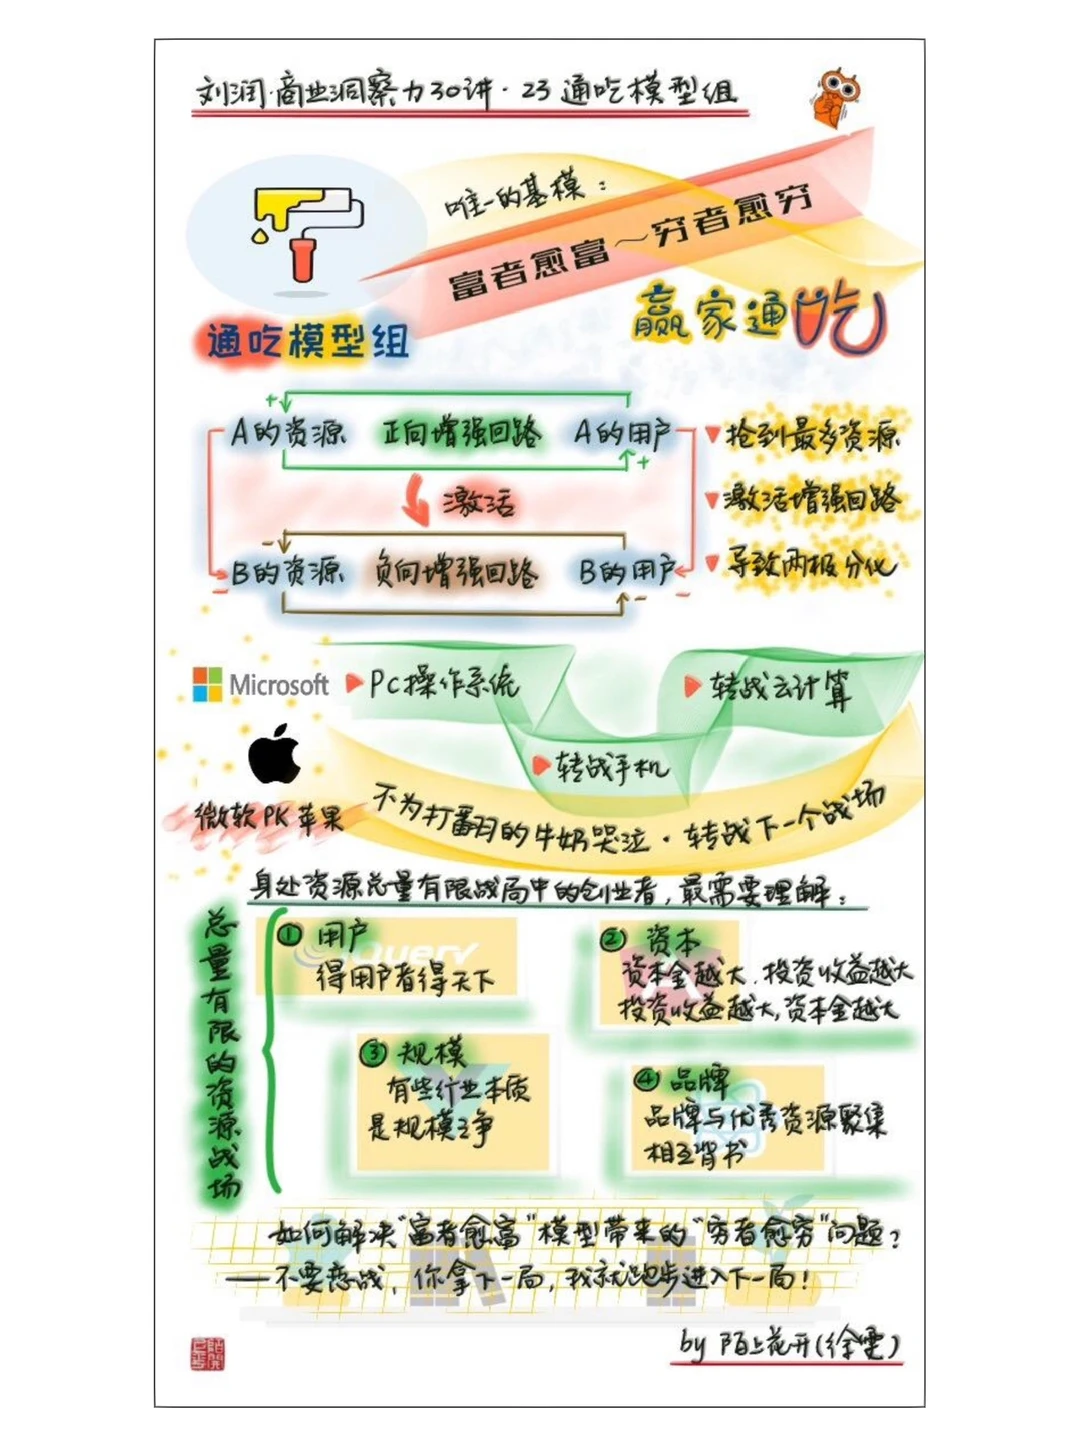 刘润·商业洞察力30讲·23通吃模型组
唯一的基模：
富者愈富～穷者愈穷
赢家通吃
通吃模型组
+
A的资源 正向增强回路 A的用户
+
抢到最多资源
激活
激活增强回路
-
B的资源 负向增强回路 B的用户
- - -
导致两极分化
Microsoft
PC操作系统
转战云计算
转战手机
微软PK苹果
不为打翻的牛奶哭泣·转战下一个战场
身处资源总量有限战局中的创业者，最需要理解：
总量有限的资源战场
① 用户
jQuery
得用户者得天下
② 资本
资本金越大，投资收益越大
投资收益越大，资本金越大
③ 规模
有些行业本质
是规模之争
④ 品牌
品牌与优秀资源聚集
相互背书
如何解决“富者愈富”模型带来的“穷者愈穷”问题？
——不要恋战，你拿下一局，我就跑步进入下一局！
by 陌上花开（徐雯）